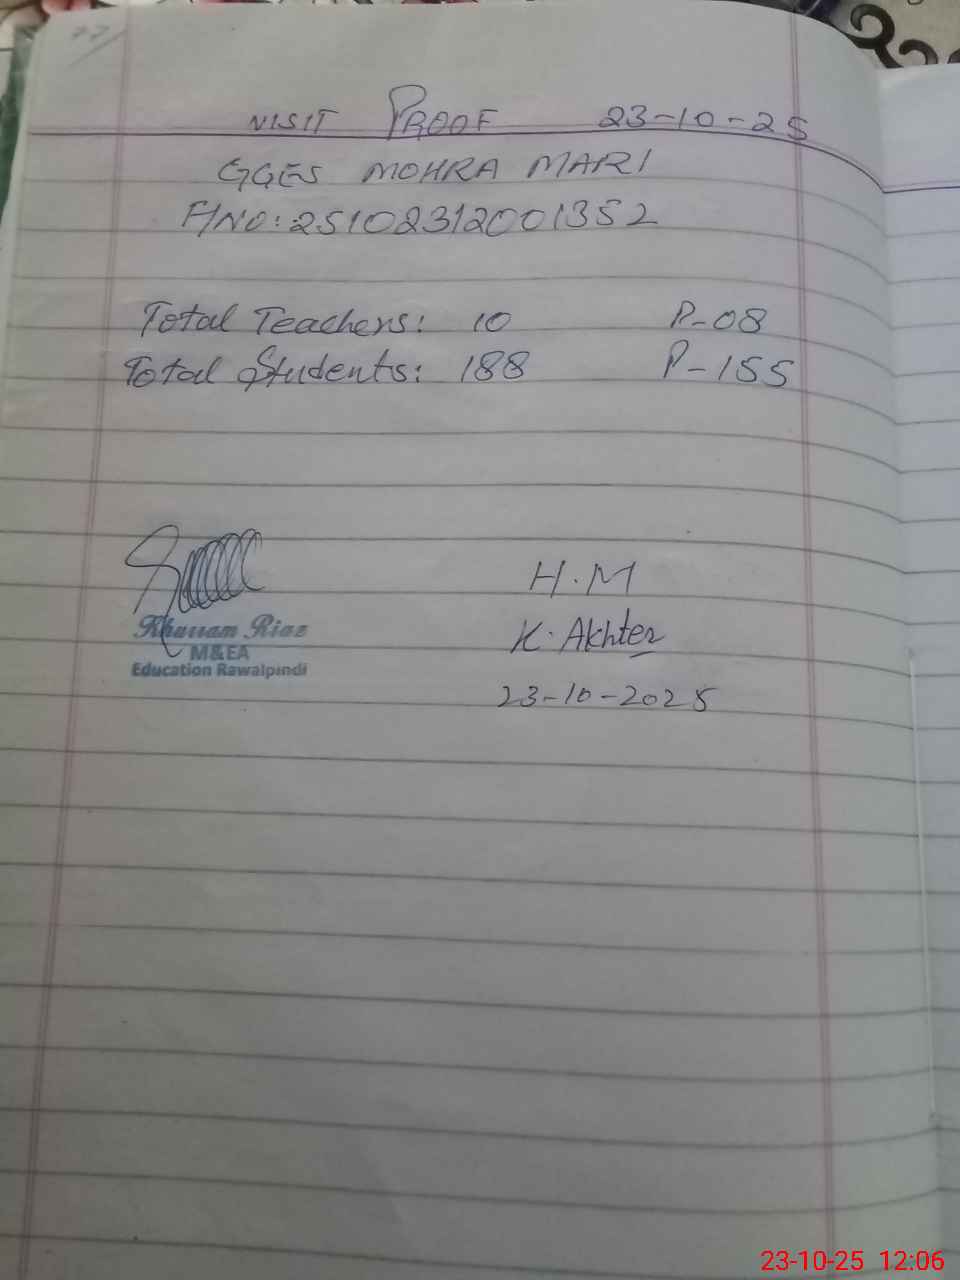 VISIT PROOF 23-10-25
GGES MOHRA MARI
F/NO: 25102312001352
Total Teachers: 10 P-08
Total Students: 188 P-155
H.M
Khurram Riaz
K. Akhter
M&EA
Education Rawalpindi
23-10-2025
23-10-25 12:06